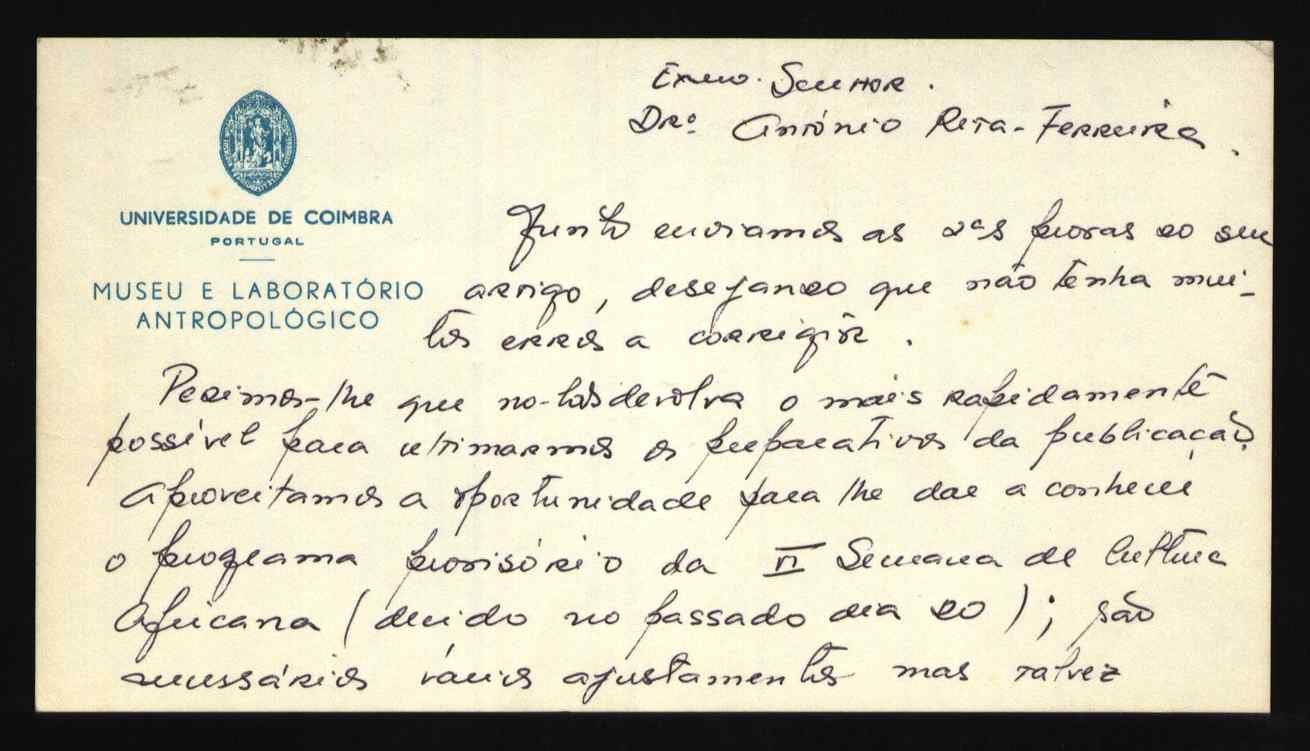 Exmo. Senhor.
Drº António Rita-Ferreira.
UNIVERSIDADE DE COIMBRA
PORTUGAL
MUSEU E LABORATÓRIO
ANTROPOLÓGICO
Junto enviamos as 2as provas do seu
artigo, desejando que não tenha mui-
tos erros a corrigir.
Pedimos-lhe que no-las devolva o mais rapidamente
possível para ultimarmos os preparativos da publicação.
Aproveitamos a oportunidade para lhe dar a conhecer
o programa provisório da VI Semana de Cultura
Africana (decidido no passado dia 20); são
necessários vários ajustamentos mas talvez